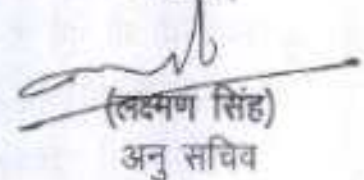 (लक्ष्मण सिंह)
अनु सचिव